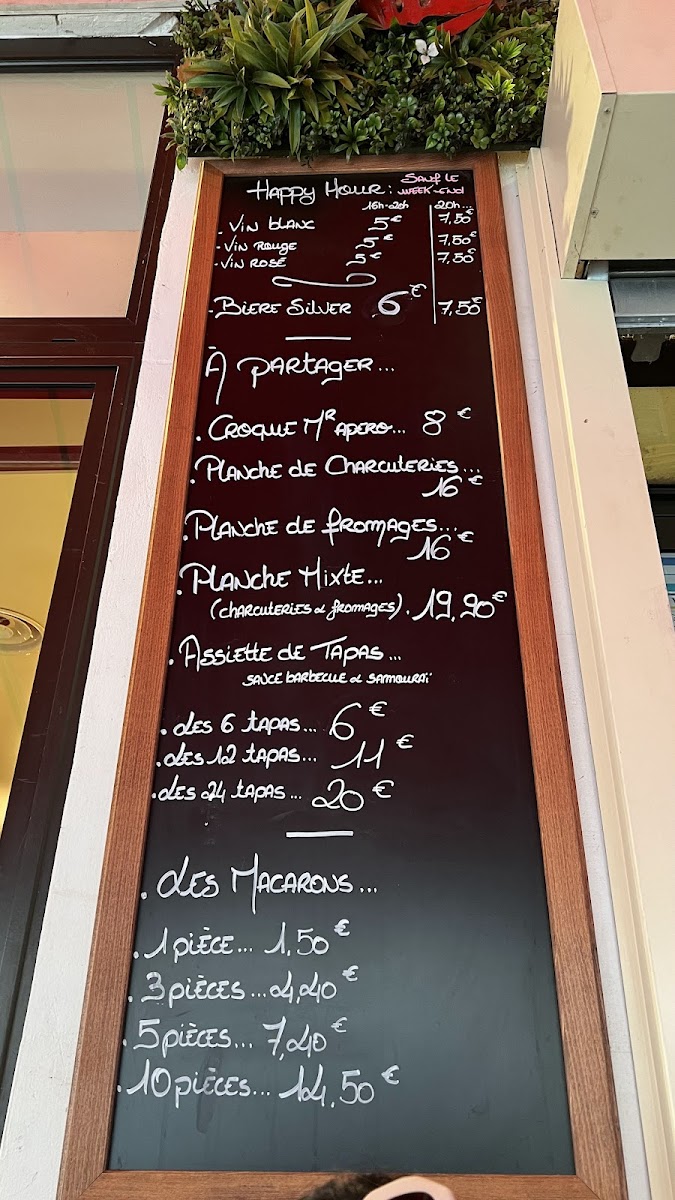 Happy Hour : Sauf le week-end
16h-20h 20h...
- Vin blanc 5€ 7,50€
- Vin rouge 5€ 7,50€
- Vin rosé 5€ 7,50€
- Bière Silver 6€ 7,50€
À partager...
. Croque Mr apero... 8€
. Planche de Charcuteries...
16€
. Planche de fromages...
16€
. Planche Mixte...
(charcuteries & fromages). 19,90€
. Assiette de Tapas...
sauce barbecue & samouraï
. Les 6 tapas... 6€
. Les 12 tapas... 11€
. Les 24 tapas... 20€
. Les Macarons...
. 1 pièce... 1,50€
. 3 pièces... 4,40€
. 5 pièces... 7,40€
. 10 pièces... 14,50€